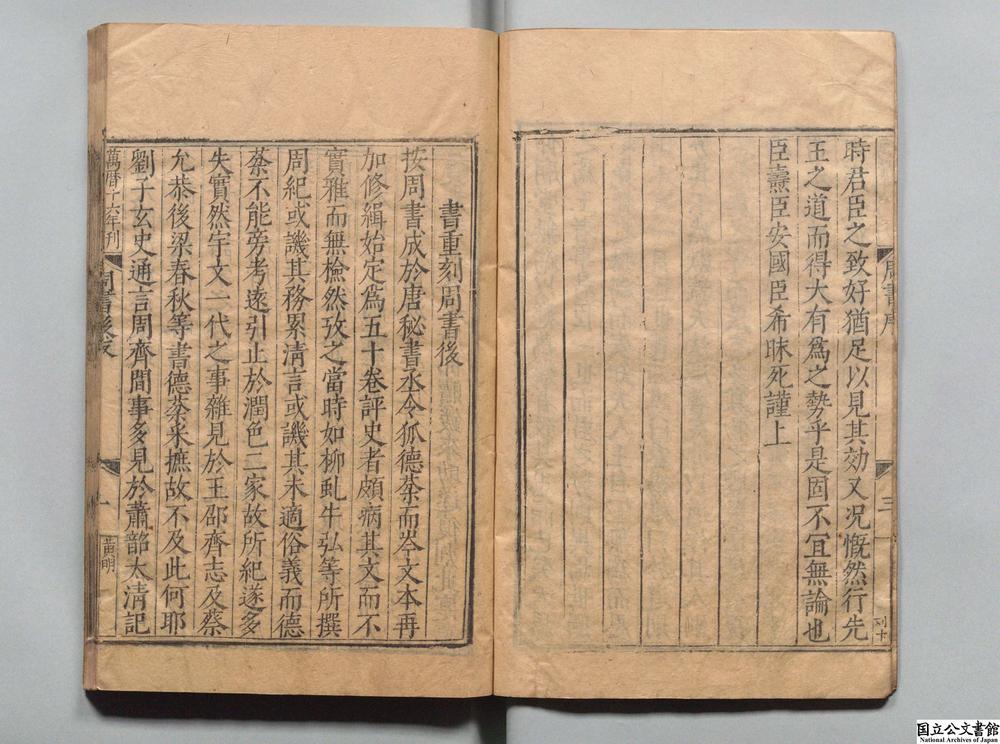 時君臣之致好猶足以見其効又況慨然行先
王之道而得大有爲之勢乎是固不冝無論也
臣燾臣安國臣希昧死謹上
周書序
三
書重刻周書後
按周書成於唐秘書丞令狐德棻而岑文本再
加修緝始定爲五十卷評史者頗病其文而不
實雅而無檢然攷之當時如柳虬牛弘等所撰
周紀或譏其務累清言或譏其未適俗義而德
棻不能旁考遠引止於潤色二家故所紀遂多
失實然宇文一代之事雜見於王邵齊志及蔡
允恭後梁春秋等書德棻采摭故不及此何耶
劉子玄史通言周齊間事多見於蕭韶太清記
萬曆十六年刊
周書後
黃明
国立公文書館
National Archives of Japan